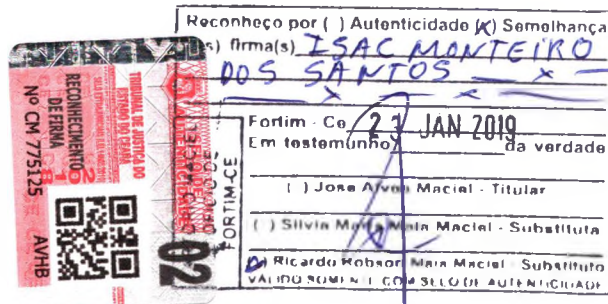 Reconheço por ( ) Autenticidade (X) Semelhança
s) firma(s) ISAC MONTEIRO
DOS SANTOS — x —
— x — x —
Fortim - Ce 23 JAN 2019
Em testemunho da verdade
( ) Jose Alves Maciel - Titular
( ) Silvia Maria Maia Maciel - Substituta
Ricardo Robson Maia Maciel - Substituto
VALIDO SOMENTE COM SELO DE AUTENTICIDADE
TRIBUNAL DE JUSTIÇA DO
ESTADO DO CEARÁ
RECONHECIMENTO
DE FIRMA
Nº CM 775125
AVHB
02
OFICIO DE
FORTIM-CE